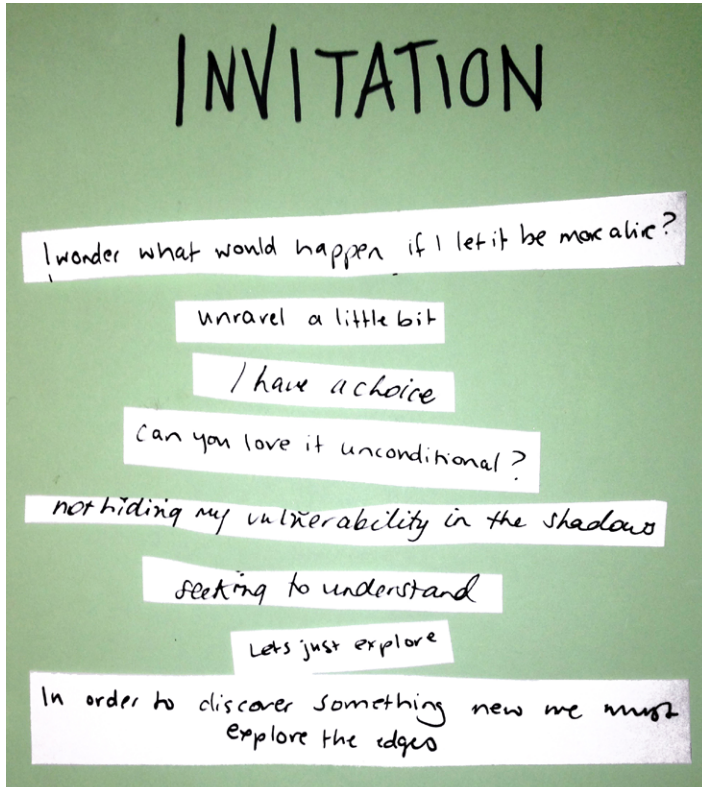 INVITATION
I wonder what would happen if I let it be more alive?
unravel a little bit
I have a choice
Can you love it unconditional?
not hiding my vulnerability in the shadows
seeking to understand
Lets just explore
In order to discover something new we must
explore the edges